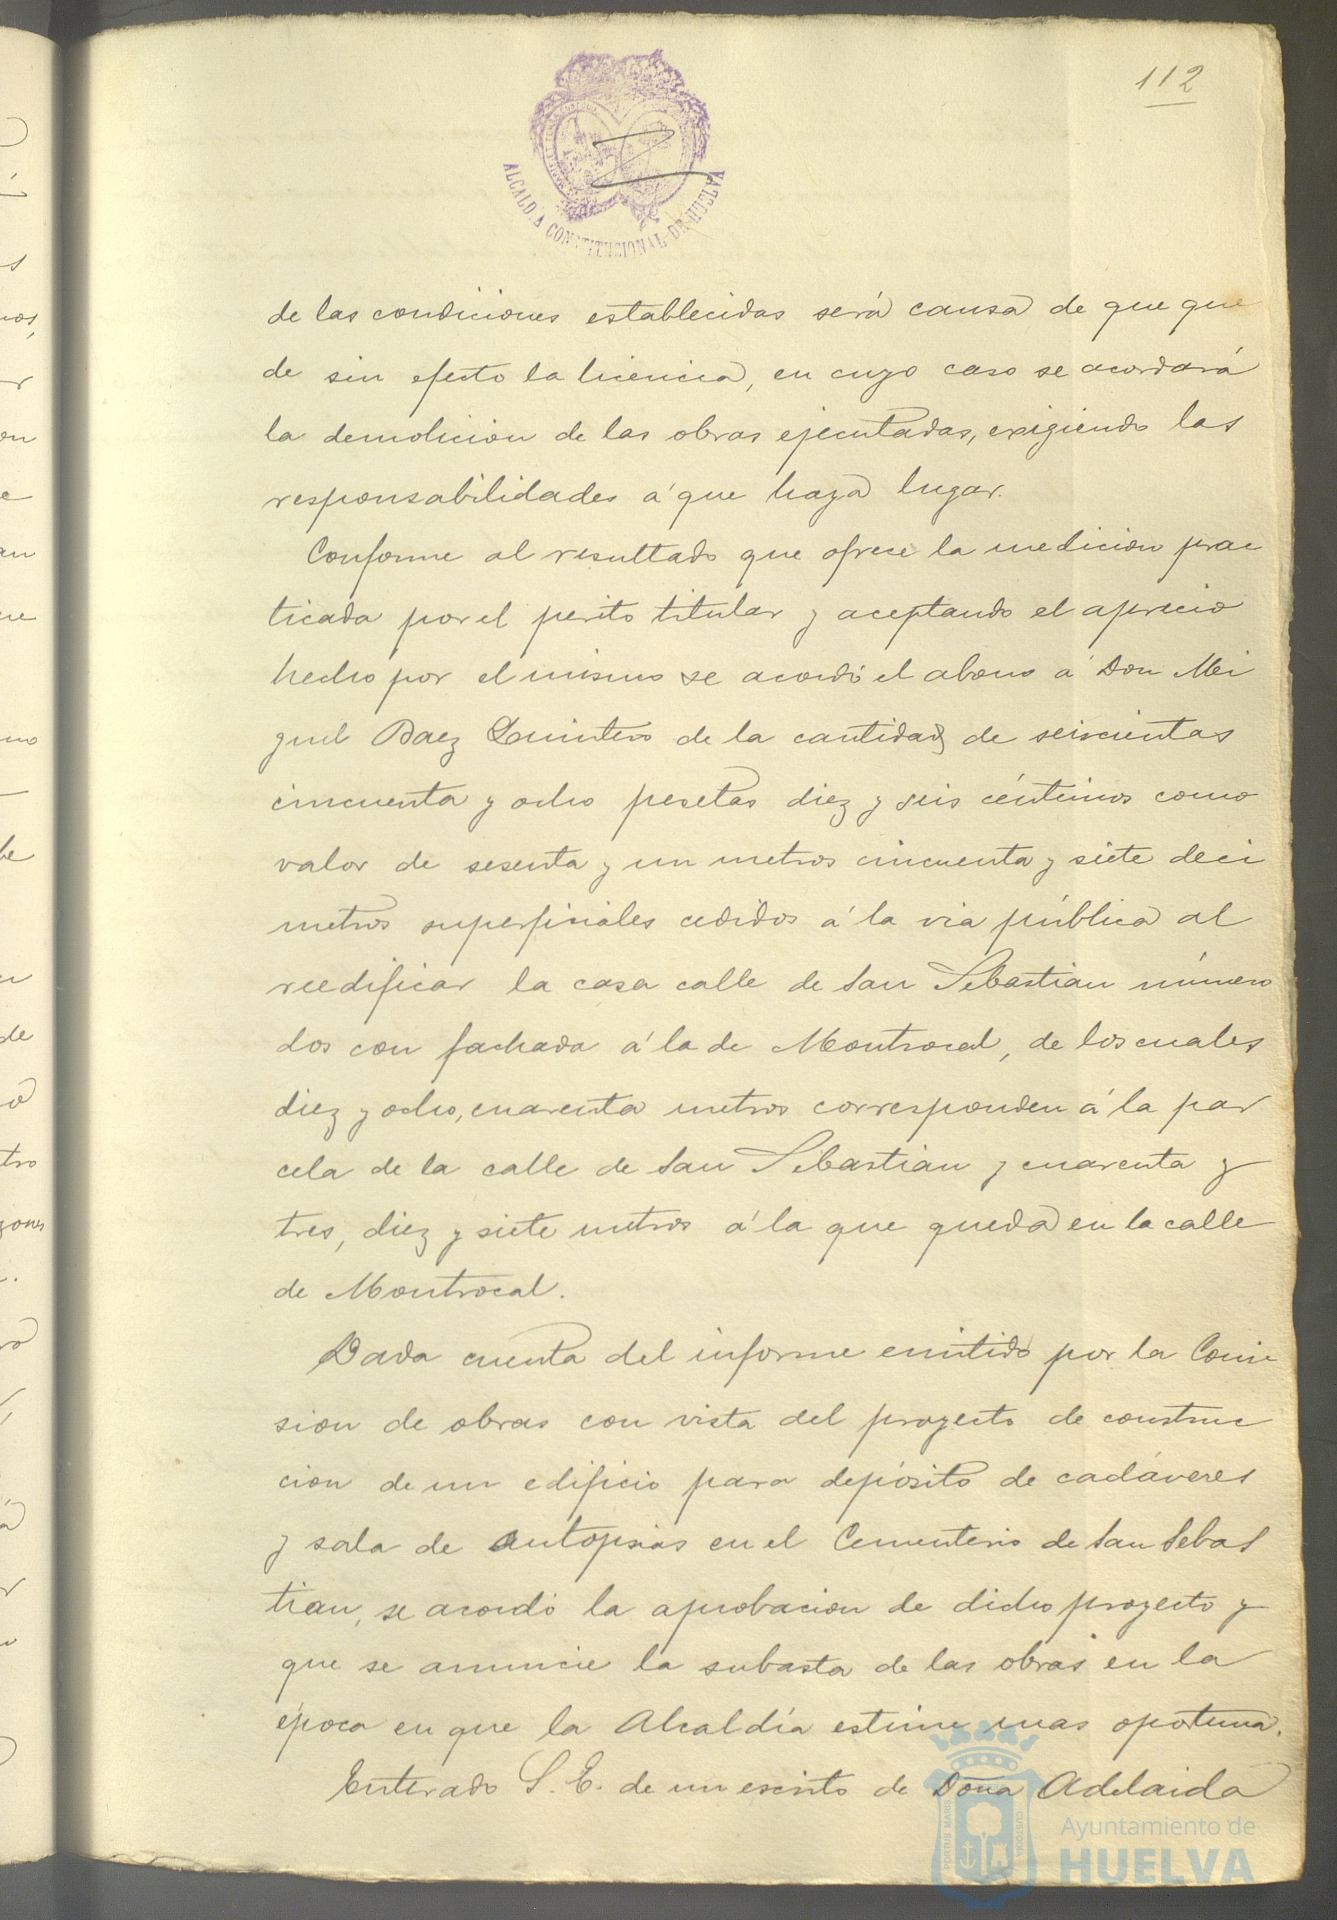 112
ALCALDIA CONSTITUCIONAL DE HUELVA
de las condiciones establecidas será causa de que que
de sin efecto la licencia, en cuyo caso se acordará
la demolicion de las obras ejecutadas, exigiendo las
responsabilidades á que haya lugar.
Conforme al resultado que ofrece la medicion prac
ticada por el perito titular y aceptando el aprecio
hecho por el mismo se acordó el abono á Don Mi
guel Baez Quintero de la cantidad de seiscientas
cincuenta y ocho pesetas diez y seis céntimos como
valor de sesenta y un metros cincuenta y siete deci
metros superficiales cedidos á la via pública al
reedificar la casa calle de San Sebastian número
dos con fachada á la de Montrocal, de los cuales
diez y ocho, cuarenta metros corresponden á la par
cela de la calle de San Sebastian y cuarenta y
tres, diez y siete metros á la que queda en la calle
de Montrocal.
Dada cuenta del informe emitido por la Comi
sion de obras con vista del proyecto de construc
cion de un edificio para depósito de cadáveres
y sala de autopsias en el Cementerio de San Sebas
tian, se acordó la aprobacion de dicho proyecto y
que se anuncie la subasta de las obras en la
época en que la Alcaldía estime mas opotuna.
Enterado S. E. de un escrito de Doña Adelaida
PORTUS MARIS
CUSTODIA
Ayuntamiento de
HUELVA